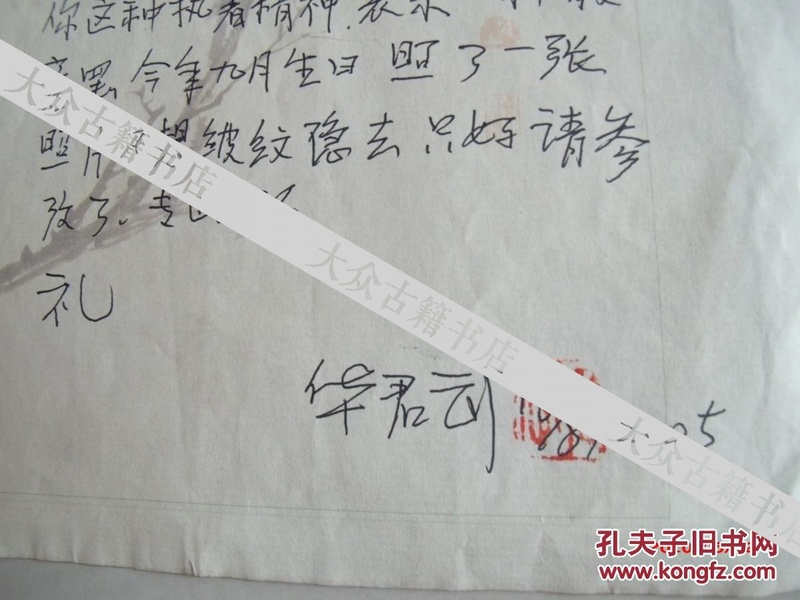 你这种执着精神,表示
今年九月生日 照了一张
照片 皱纹隐去 只好请参
改了。专
礼
华君武
198
05
大众古籍书店
大众古籍书店
大众古籍书店
孔夫子旧书网
www.kongfz.com